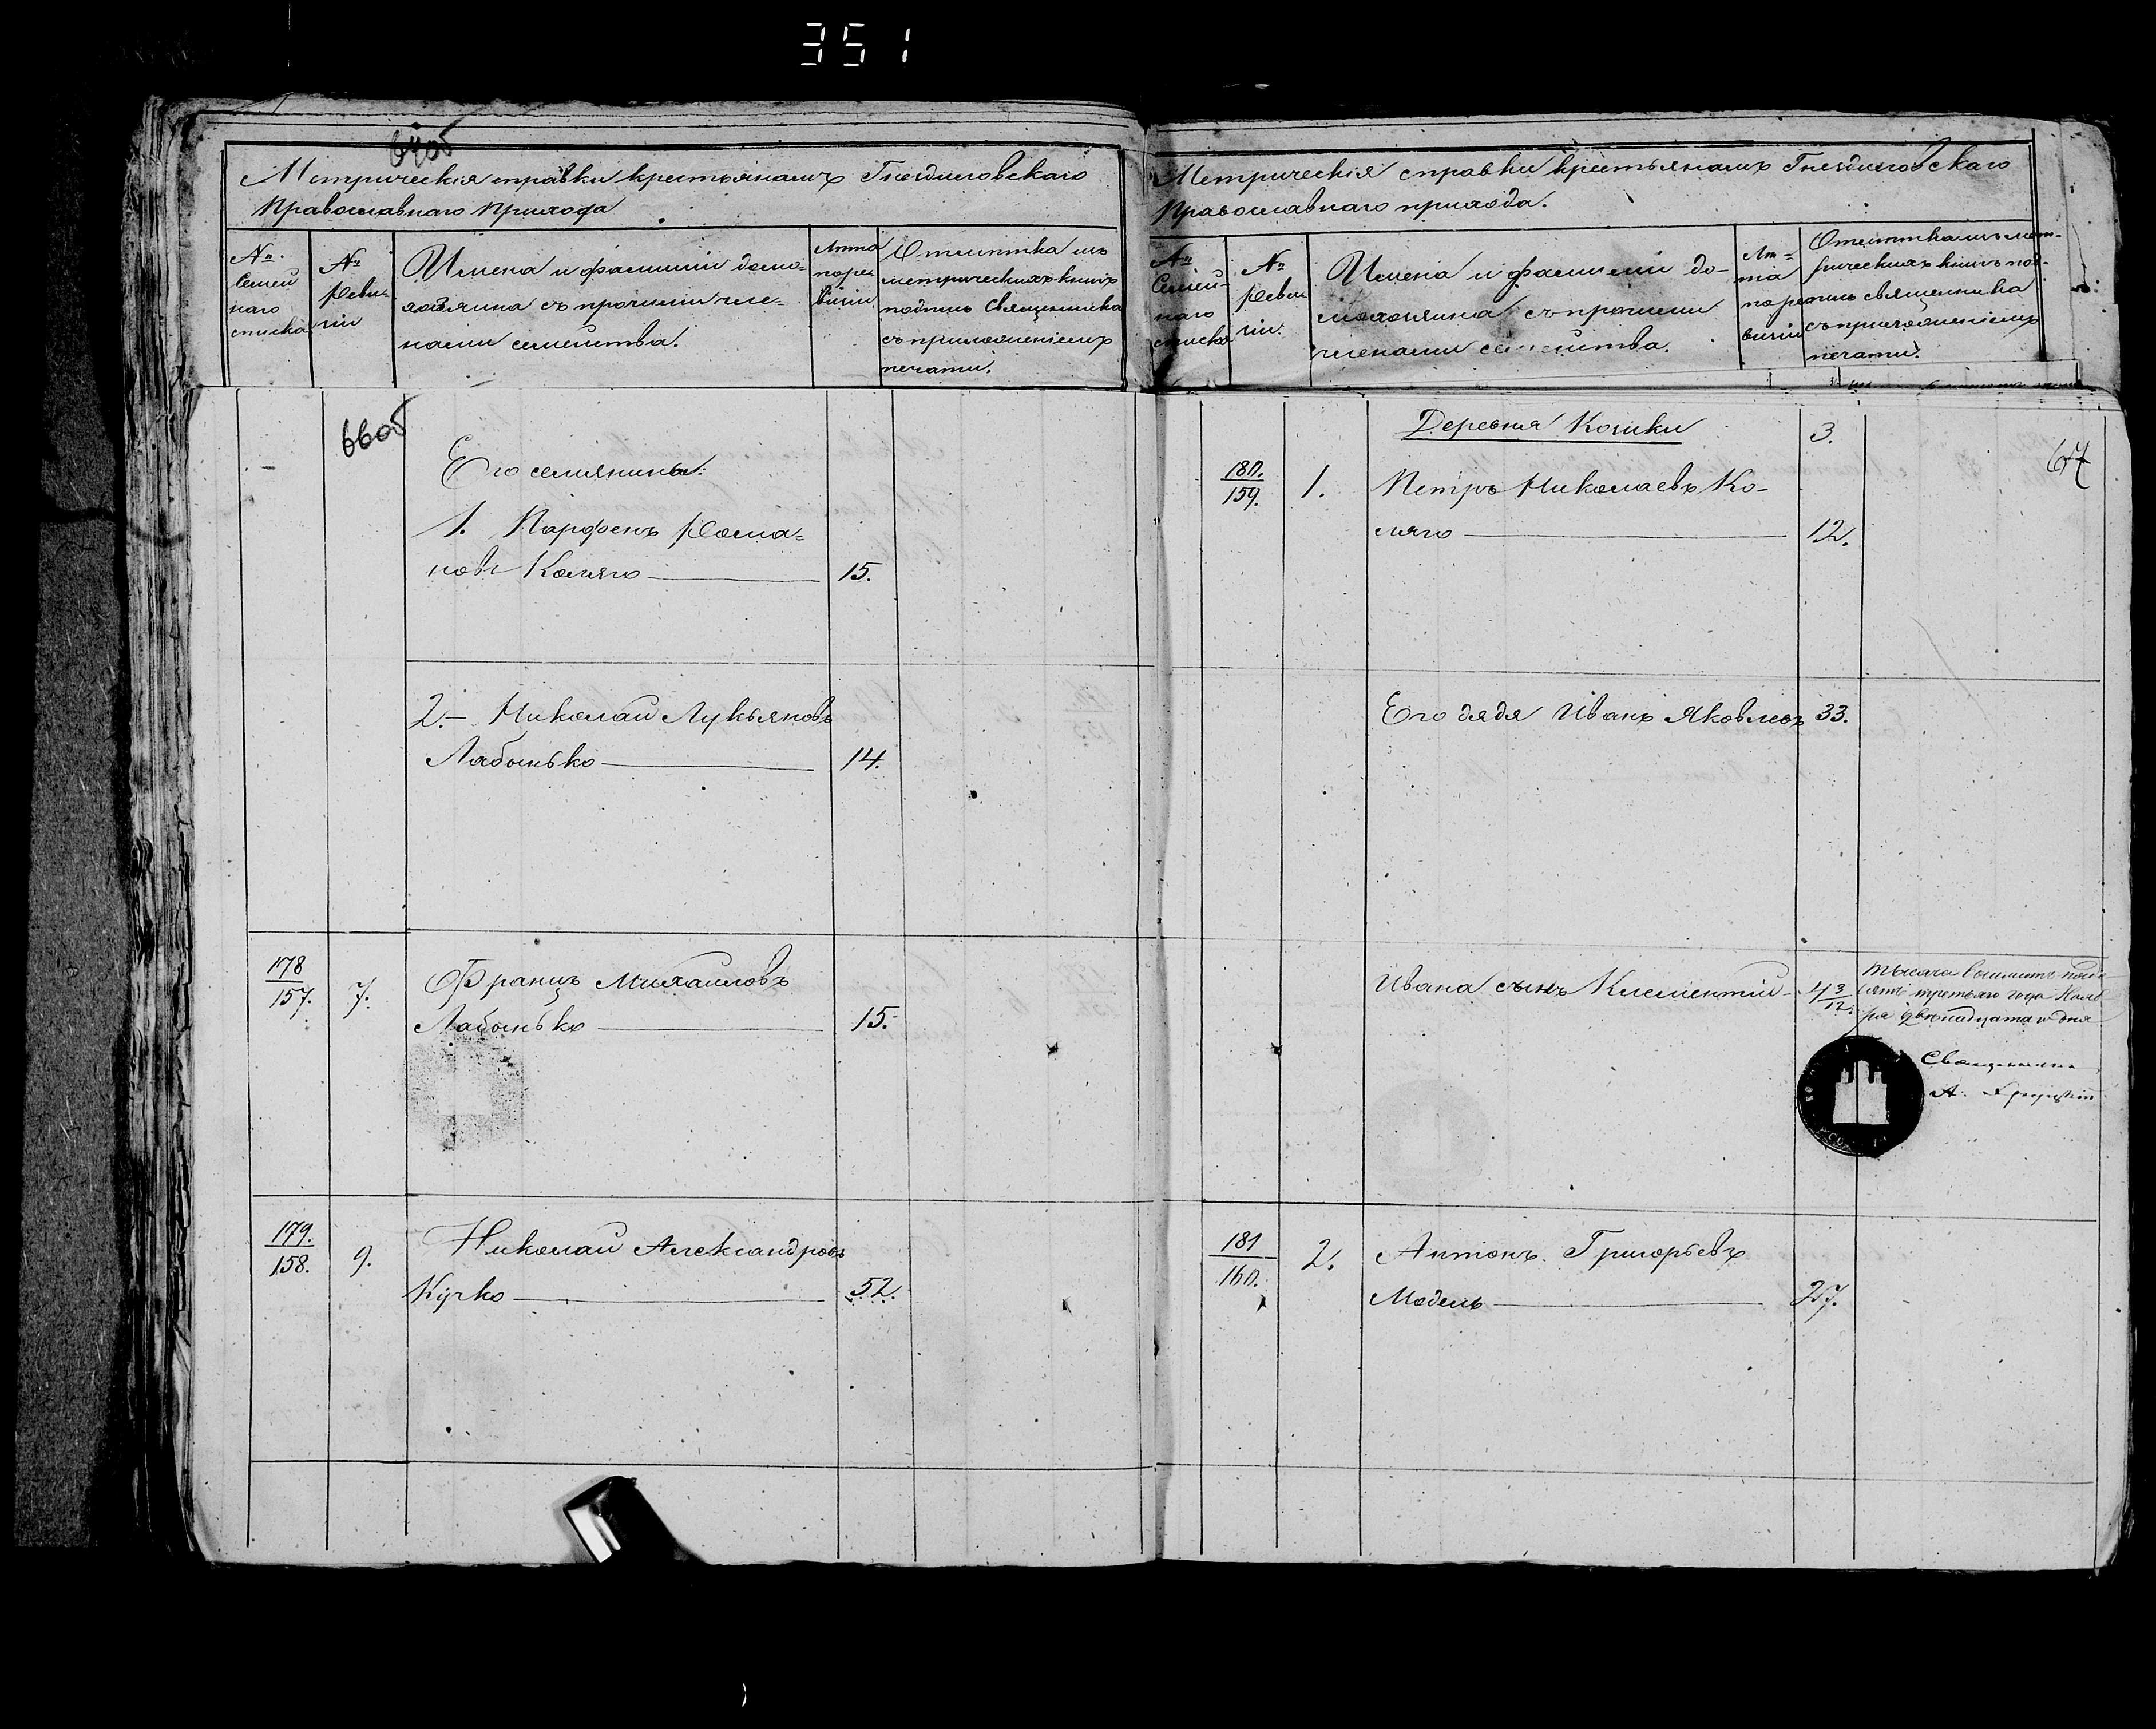 351
64об
Метрическія справки крестьянамъ Гнездиловскаго
Православнаго Прихода
№
Семей
наго
списка
№
Реви-
зіи
Имена и фамиліи домо-
хозяина съ прочими чле-
нами семейства.
Лѣта
по ре
визіи
Отмѣтка изъ
метрическихъ книгъ
подпись Священника
съ приложеніемъ
печати.
66об
Его семянины:
1. Парфенъ Рома=
новъ Коляго 15.
2.- Николай Лукьяновъ
Лабонько 14.
178
157. 7. Францъ Михаиловъ
Лабонько 15.
179.
158. 9. Николай Александровъ
Курко 52.
Метрическія справки крестьянамъ Гнездиловскаго
Православнаго прихода.
№
Семей-
наго
списка
№
Реви
зіи.
Имена и фамиліи до-
мохозяина съ прочими
членами семейства.
Лѣ=
та
по ре
визіи
Отмѣтка изъ мет-
рическихъ книгъ под-
пись священника
съ приложеніемъ
печати.
67
Деревня Колики 3.
180.
159. 1. Петръ Николаевъ Ко-
ляго 12.
Его дядя Иванъ Яковлевъ 33.
Ивана сынъ Климентій 4 3/12.
тысяча восемьсотъ пятьде
сятъ третьяго года Нояб
ря двенадцатаго дня
Священникъ
А.
181
160. 2. Антонъ Григорьевъ
Модель 27.